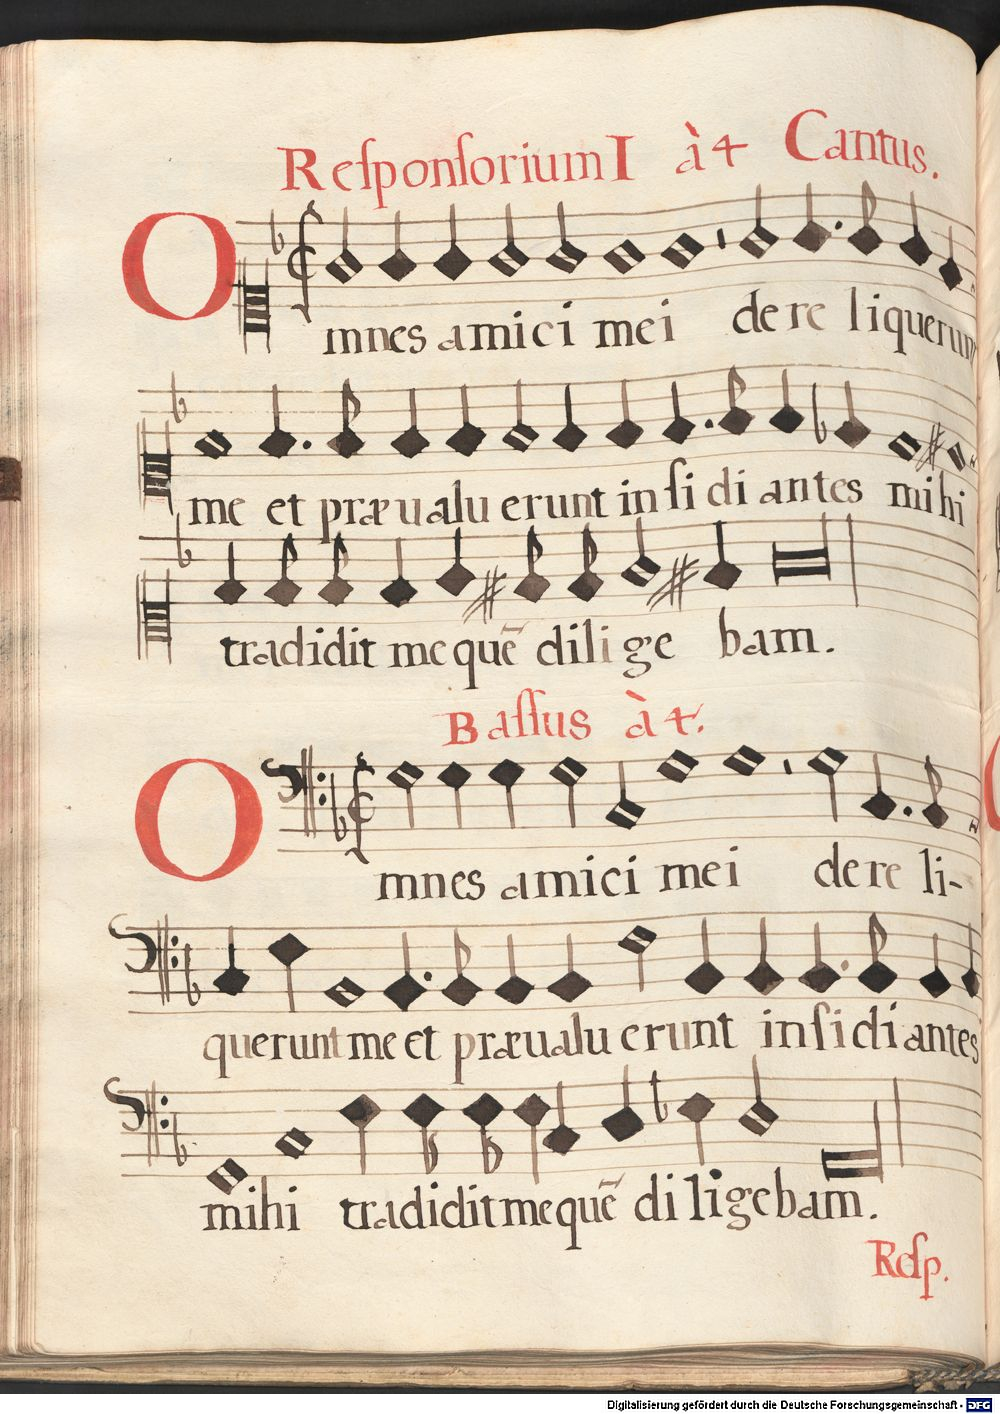 Reſponſorium I à 4 Cantus.
Omnes amici mei dere liquerunt
me et præualuerunt inſidiantes mihi
tradidit me quē dilige bam.
Baſſus à 4.
Omnes amici mei dere li-
querunt me et præualuerunt inſidiantes
mihi tradidit me quē diligebam.
Reſp.
Digitalisierung gefördert durch die Deutsche Forschungsgemeinschaft - DFG